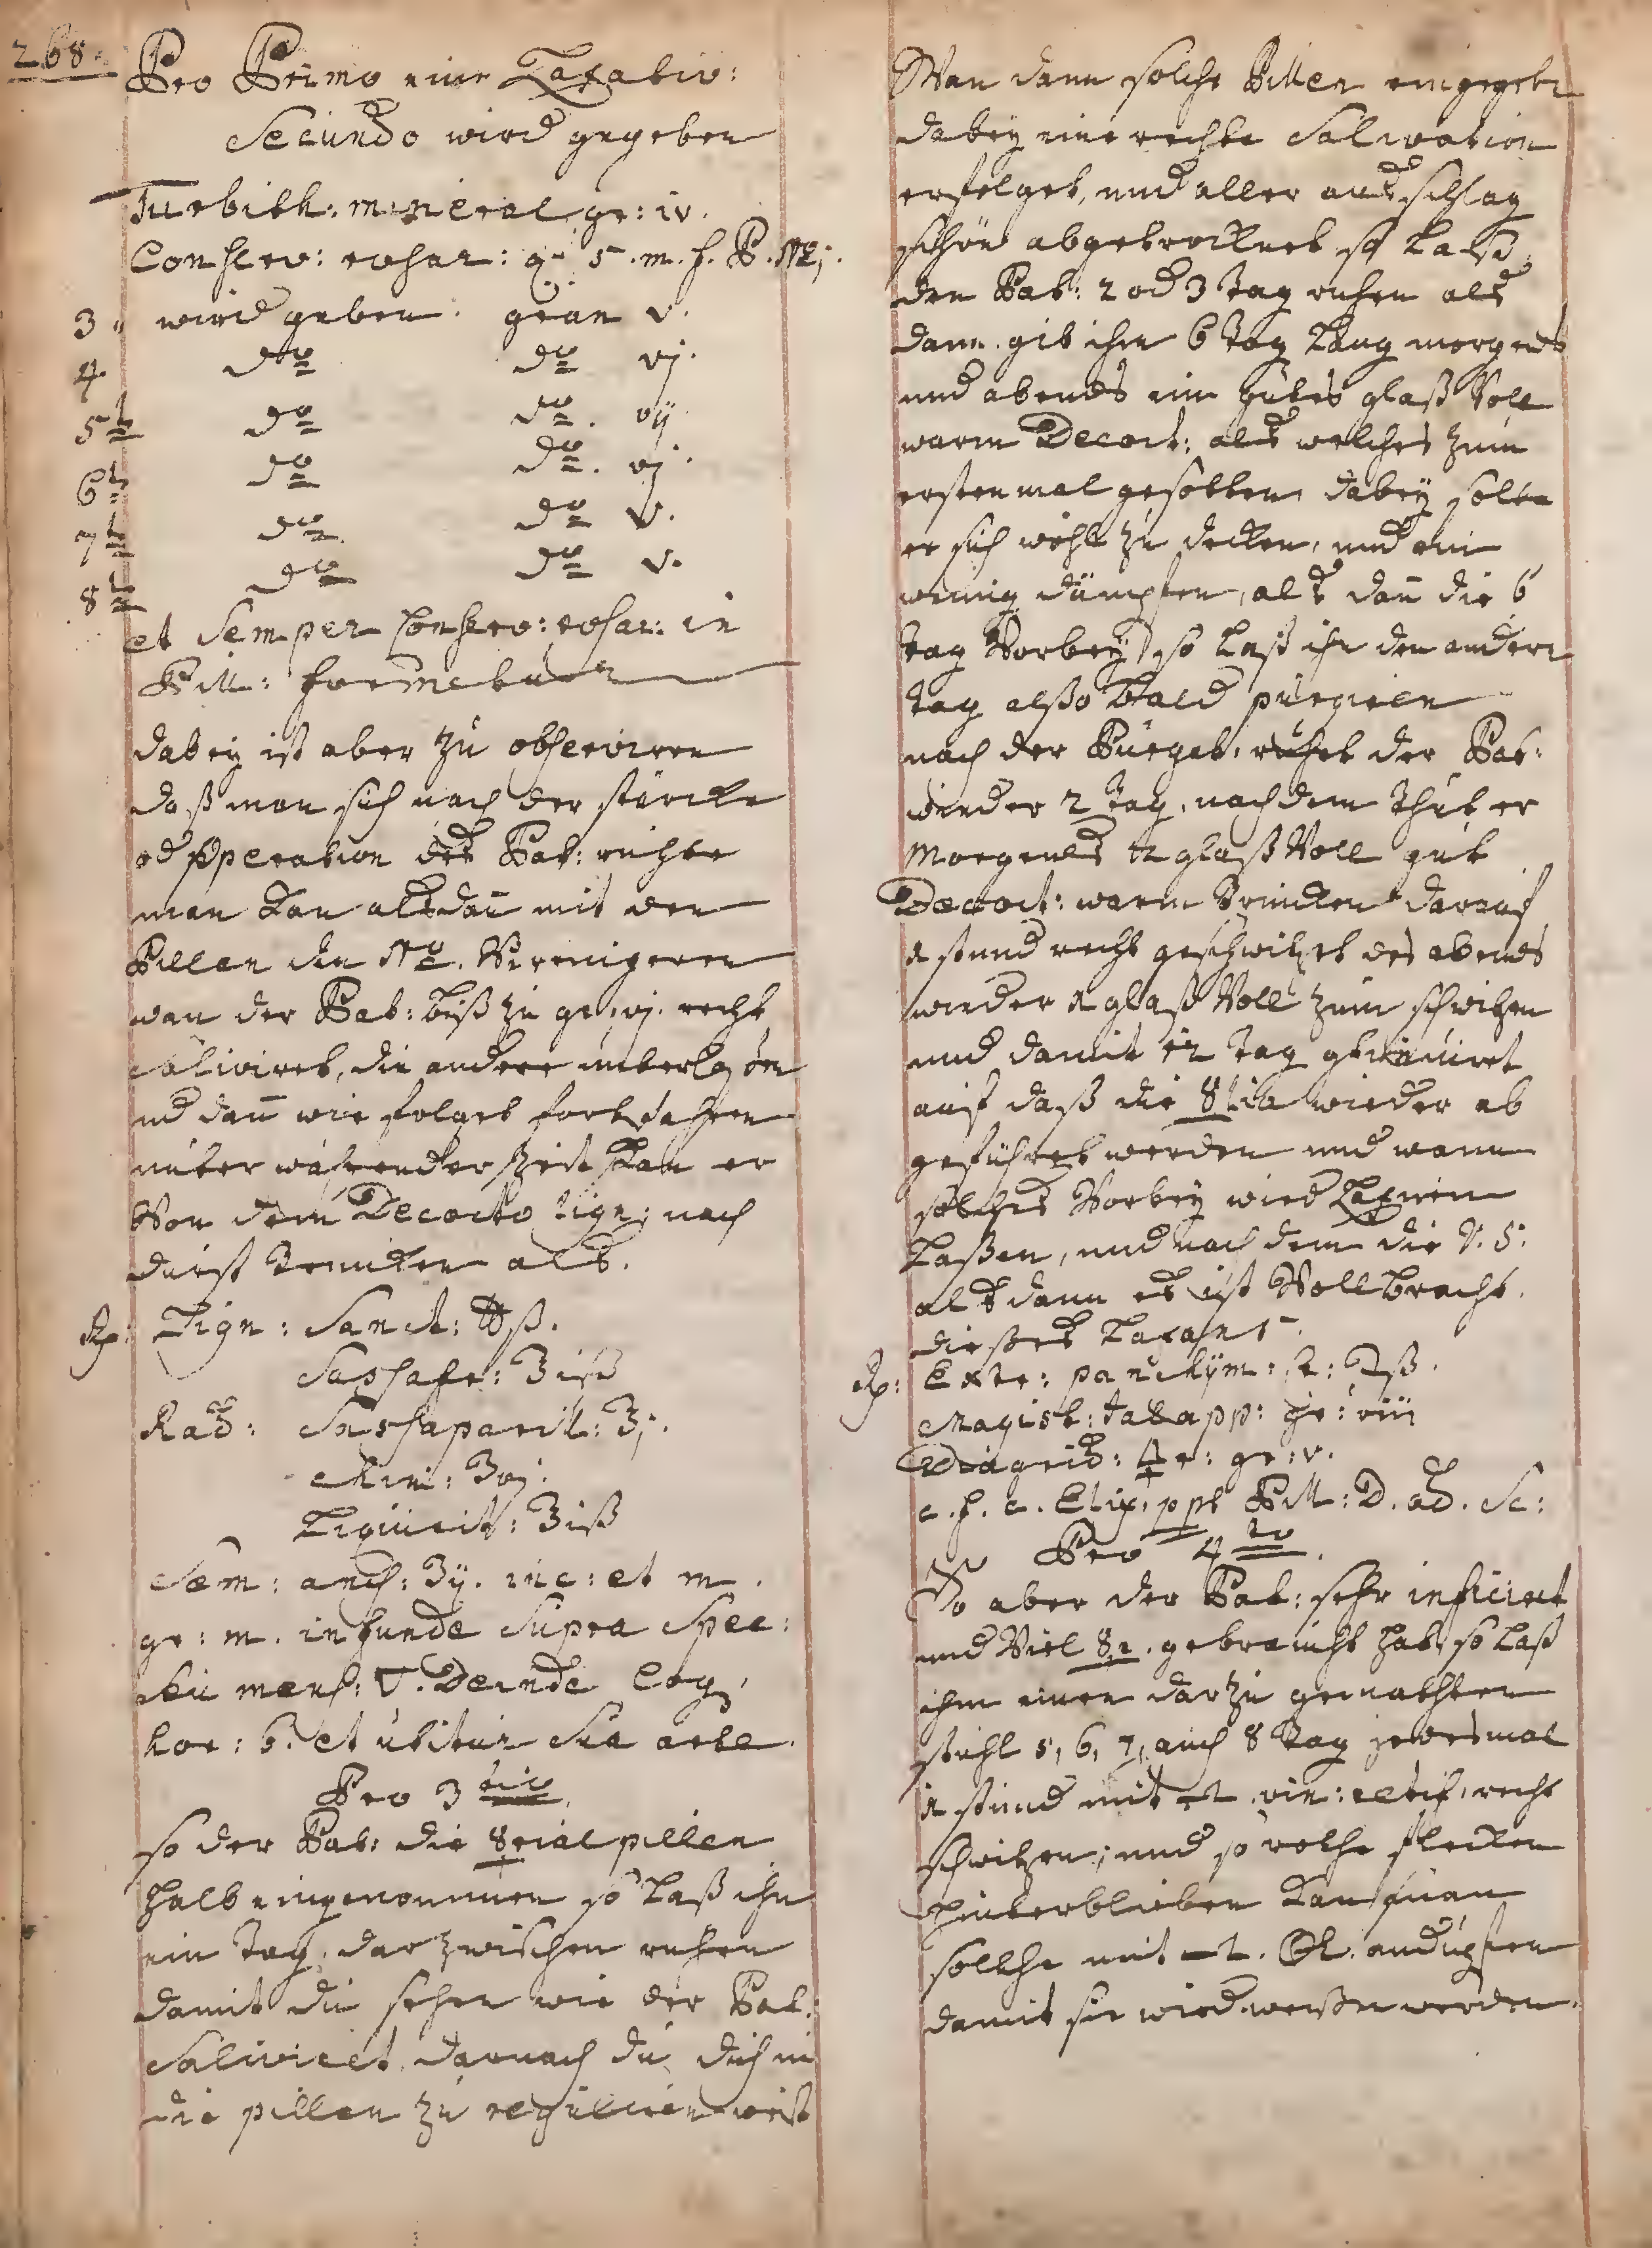 268.
Pro Primo eine Laxativ:
Secundo wird gegeben
Turbith: mineral gr: iv.
Conserv: rosar: q. s. m. f. P. No j.
3. wird geben gran v.
4 do do vj.
5te do do. vij
6te do do. vj.
7te do do v.
8te do do v.
et Semper Conserv: rosar: in
Pill: formetur
dabey ist aber zu observiren
daß man sich nach der stärcke
od operation des Pat: richte
man kan alsdan mit den
Pillen den No. Verenigeren
wan der Pat: biß zu gr: vj. recht
saliviret, die andere unterlaßen
und dan wie folget fortfahren
unter währender Zeit kan er
Von dem Decocto lign: nach
durst trincken als.
Rp: Lign: Sanct: ℔ß.
Sassafr: ℥iß
Rad: Sassaparill: ℥j.
Chin: ʒvj.
Liquirit: ℥iß
Sem: anis: ʒij. inc: et m.
gr: m. infunde Supra Spec:
mens: ▽. Deinde Coq,
hor: 6. et utitur Sua arte.
Pro 3tio.
so der Pat: die ☿rial pillen
halb eingenommen so laß ihn
ein tag darzwischen ruhen
damit du sehen wie der Pat:
Saliviret darnach du dich in
die pillen zu reguliren weist
Wan dann solche Pillen eingegebn
dabey eine rechte Salivation
erfolget, und aller ausschlag
schön abgetrocknet so laß
den Pat: 2 od 3 tag ruhen als
dann gib ihm 6 tag lang morgends
und abends ein gutes glaß Voll
warm Decoct: als welches zum
ersten mal gesotten dabey solte
er sich wohl zu decken, und ein
wenig dämpfen, als dan die 6
tag Vorbey so laß ihn den andern
tag also bald purgiren
nach der Purgat: ruhet der Pat:
wieder 2 tag, nach dem thut er
Morgends 1 glaß Voll gut
Decoct: warm trincken darauf
1 stund recht geschwitzet des abends
wieder 1 glaß Voll zum schwitzen
und damit 12 tag
auf daß die ☿ria wieder ab
geführet werden und wann
solches Vorbey wird
Laßen, und nach dem die V. S.
als dann es ist Vollbracht.
dießes laxans.
Rp: Extr: panchym: ℈ß.
Magist: Jalapp: gr: viii
Diagrid: gr: v.
c. f. c. Elix: ppt Pill: D. ad. Sc:
Pro 4to.
So aber der Pat: sehr inficirt
und Viel ☿r. gebraucht hat, so laß
ihm einen darzu gemachten
stuhl 5, 6, 7, auch 8 tag jedesmal
1 stund mit vin: rectif: recht
schwitzen; und so rothe flecken
hinterblieben kan man
solche mit Ol. andupfen
damit sie wied weißer werden.